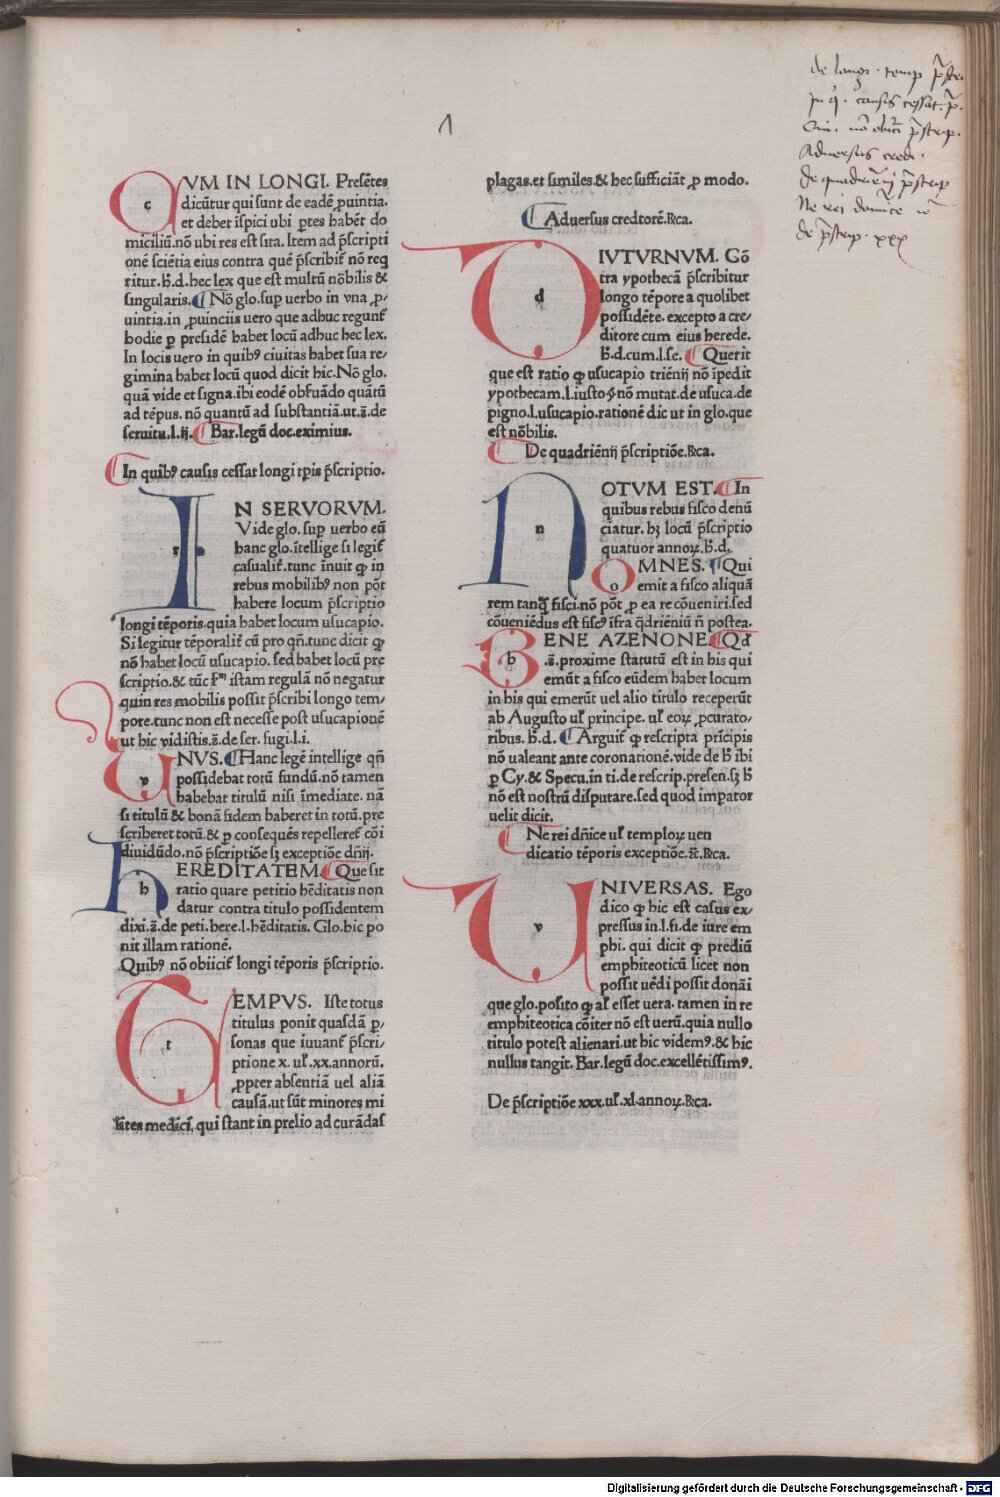 1
CVM IN LONGI. Presẽtes
dicũtur qui sunt de eadẽ ꝓuintia.
et debet ĩspici ubi ꝑtes habẽt do
miciliũ.nõ ubi res est sita. Item ad p̃scripti
onẽ sciẽtia eius contra quẽ p̃scribit᷑ nõ req
ritur.h̃.d.hec lex que est multũ nõbilis &
singularis. ¶ Nõ glo.suꝑ uerbo in vna ꝓ/
uintia.in ꝓuinciis uero que adhuc regunt᷑
hodie ꝑ presidẽ habet locũ adhuc hec lex.
In locis uero in quibꝰ ciuitas habet sua re/
gimina habet locũ quod dicit hic.Nõ glo.
quã vide et signa.ibi eodẽ obſuãdo quãtũ
ad tẽpus. nõ quantũ ad substantiã.ut.ẓ̃.de
seruitu.l.ij. ¶ Bar.legũ doc.eximius.
¶ In quibꝰ causis cessat longi tꝑis p̃scriptio.
IN SERVORVM.
Vide glo.suꝑ uerbo eũ
hanc glo.ĩtellige si legit᷑
casualit᷑.tunc ĩnuit ꝙ in
rebus mobilibꝰ non põt
habere locum p̃scriptio
longi tẽporis.quia habet locum usucapio.
Si legitur tẽporalit᷑ cũ pro qñ.tunc dicit ꝙ
nõ habet locũ usucapio. sed habet locũ pre
scriptio.& tũc ẜm istam regulã nõ negatur
quin res mobilis possit p̃scribi longo tem/
pore.tunc non est necesse post usucapionẽ
ut hic vidistis.ẓ̃.de ser. fugi.l.i.
VNVS. ¶ Hanc legẽ intellige qñ
possidebat totũ fundũ.nõ tamen
habebat titulũ nisi ĩmediate. nã
si titulũ & bonã fidem haberet in totũ.pre
scriberet totũ.& ꝑ consequẽs repelleret᷑ cõi
diuidũdo.nõ p̃scriptiõe sꝫ exceptiõe dñij.
HEREDITATEM. ¶ Que sit
ratio quare petitio hẽditatis non
datur contra titulo possidentem
dixi.ẓ̃.de peti.here.l.hẽditatis. Glo.hic po
nit illam rationẽ.
Quibꝰ nõ obiicit᷑ longi tẽporis p̃scriptio.
TEMPVS. Iste totus
titulus ponit quasdã ꝑ/
sonas que iuuant᷑ p̃scri/
ptione x. ul᷑.xx.annorũ.
ꝓpter absentiã uel aliã
causã.ut sũt minores mi
lites medici. qui stant in prelio ad curãdas
plagas.et similes.& hec sufficiãt ꝓ modo.
¶ Aduersus credtorẽ.Rca.
DIVTVRNVM. Cõ
tra ypothecã p̃scribitur
longo tẽpore a quolibet
possidẽte. excepto a cre/
ditore cum eius herede.
h̃.d.cum.l.se. ¶ Querit
que est ratio ꝙ usucapio triẽnij nõ ĩpedit
ypothecam.l.iusto.§.nõ mutat.de usuca.de
pigno.l.usucapio.rationẽ dic ut in glo.que
est nõbilis.
¶ De quadriẽnij p̃scriptiõe.Rca.
NOTVM EST. ¶ In
quibus rebus fisco denũ
ciatur. hꝫ locũ p̃scriptio
quatuor annoꝝ.h̃.d.
OMNES. ¶ Qui
emit a fisco aliquã
rem tanꝗ̃ fisci.nõ põt ꝓ ea re cõueniri.sed
cõueniẽdus est fiscꝰ ĩfra q̃driẽniũ ñ postea.
BENE AZENONE. ¶ Qđ
.ẓ̃.proxime statutũ est in his qui
emũt a fisco eũdem habet locum
in his qui emerũt uel alio titulo receperũt
ab Augusto ul᷑ principe. ul᷑ eoꝝ ꝓcurato/
ribus. h̃.d. ¶ Arguit᷑ ꝙ rescripta prĩcipis
nõ ualeant ante coronationẽ.vide de h̃ ibi
ꝑ Cy.& Specu.in ti.de rescrip.presen.sꝫ h̃
nõ est nostrũ disputare.sed quod imꝑator
uelit dicit.
¶ Ne rei dñice ul᷑ temploꝝ uen
dicatio tẽporis exceptiõe.ẓ̃.Rca.
VNIVERSAS. Ego
dico ꝙ hic est casus ex/
pressus in.l.fi.de iure em
phi. qui dicit ꝙ prediũ
emphiteoticũ licet non
possit uẽdi possit donãi
que glo.posito ꝙ al᷑ esset uera. tamen in re
emphiteotica cõiter nõ est uerũ.quia nullo
titulo potest alienari.ut hic videmꝰ.& hic
nullus tangit. Bar.legũ doc.excellẽtissimꝰ.
De p̃scriptiõe xxx.ul᷑.xl.annoꝝ.Rca.
de longi . temp p̃scr.
In q̃ . causis cessat. p̃.
Aduersus credi.
de quadriẽnij p̃scrip
Ne rei domĩce
de p̃scrip. xxx
Digitalisierung gefördert durch die Deutsche Forschungsgemeinschaft - DFG